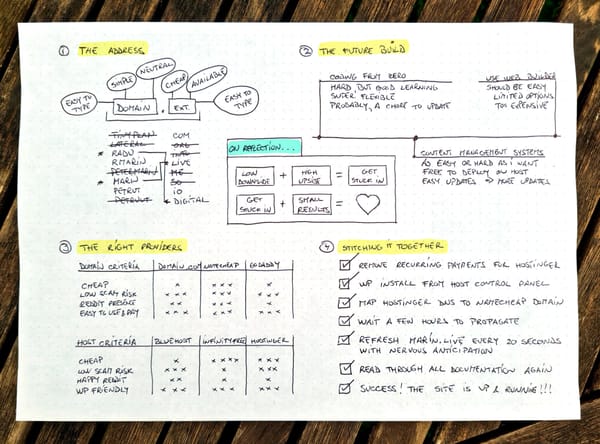 1 THE ADDRESS
SIMPLE
NEUTRAL
CHEAP
AVAILABLE
EASY TO TYPE
DOMAIN . EXT.
EASY TO TYPE
TINYPLAN COM
LATERAL ORG
* RADU INFO
RMARIN LIVE
PETERMARIN ME
* MARIN SO
PETRUT IO
PETRUUT DIGITAL
2 THE FUTURE BUILD
CODING FROM ZERO
HARD BUT GOOD LEARNING
SUPER FLEXIBLE
PROBABLY A CHORE TO UPDATE
USE WEB BUILDER
SHOULD BE EASY
LIMITED OPTIONS
TOO EXPENSIVE
CONTENT MANAGEMENT SYSTEMS
AS EASY OR HARD AS I WANT
FREE TO DEPLOY ON HOST
EASY UPDATES → MORE UPDATES
ON REFLECTION...
LOW DOWNSIDE + HIGH UPSIDE = GET STUCK IN
GET STUCK IN + SMALL RESULTS = ♡
3 THE RIGHT PROVIDERS
DOMAIN CRITERIA DOMAIN.COM NAMECHEAP GODADDY
CHEAP x xxx xx
LOW SCAM RISK xxx xxx xxx
REDDIT PEOPLE x xxx x
EASY TO USE & PAY xxx xxx xxx
HOST CRITERIA BLUEHOST INFINITYFREE HOSTINGER
CHEAP x xxxx xxx
LOW SCAM RISK xxx xx xxx
HAPPY REDDIT xx x x
WP FRIENDLY xxx xxx xxx
4 STITCHING IT TOGETHER
☑ REMOVE RECURRING PAYMENTS FOR HOSTINGER
☑ WP INSTALL FROM HOST CONTROL PANEL
☑ MAP HOSTINGER DNS TO NAMECHEAP DOMAIN
☑ WAIT A FEW HOURS TO PROPAGATE
☑ REFRESH MARIN.LIVE EVERY 20 SECONDS
WITH NERVOUS ANTICIPATION
☑ READ THROUGH ALL DOCUMENTATION AGAIN
☑ SUCCESS! THE SITE IS UP & RUNNING!!!